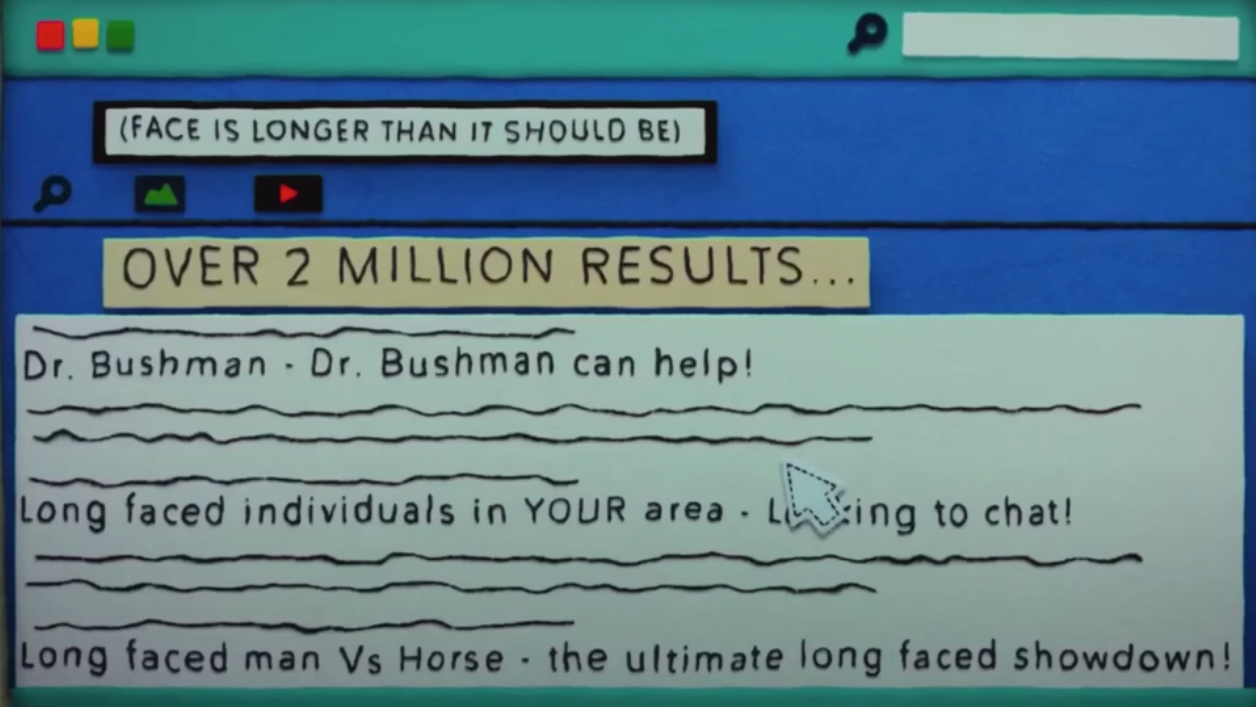 (FACE IS LONGER THAN IT SHOULD BE)
OVER 2 MILLION RESULTS...
Dr. Bushman - Dr. Bushman can help!
Long faced individuals in YOUR area - to chat!
Long faced man Vs Horse - the ultimate long faced showdown!